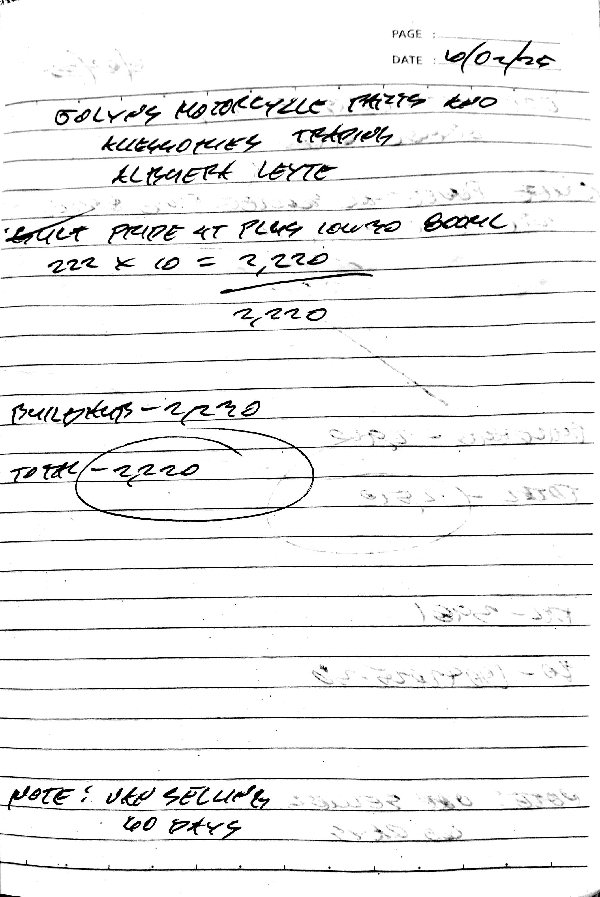 PAGE :
DATE : 6/02/25
JOLYNS MOTORCYCLE PARTS AND
ACCESSORIES TRADING
ALBUERA LEYTE
GULF PRIDE 4T PLUS 10W30 800ML
222 X 10 = 2,220
2,220
BUILDHUB - 2,220
TOTAL - 2,220
NOTE : VAN SELLING
60 DAYS